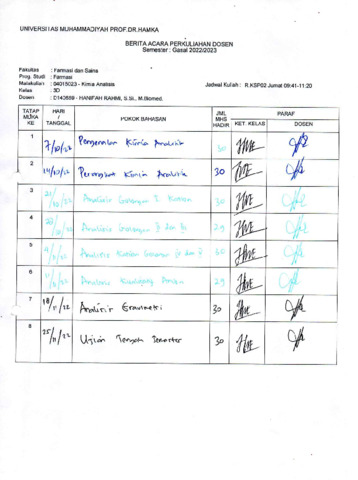 UNIVERSITAS MUHAMMADIYAH PROF.DR.HAMKA
BERITA ACARA PERKULIAHAN DOSEN
Semester : Gasal 2022/2023
Fakultas : Farmasi dan Sains
Prog. Studi : Farmasi
Matakuliah : 04015023 - Kimia Analisis
Kelas : 3D
Dosen : D140869 - HANIFAH RAHMI, S.Si., M.Biomed.
Jadwal Kuliah : R.KSP02 Jumat 09:41-11:20
TATAP MUKA KE HARI / TANGGAL POKOK BAHASAN JML MHS HADIR KET. KELAS PARAF DOSEN
1 7/10/22 Pengenalan Kimia Analisis 30
2 14/10/22 Perangkat Kimia Analisis 30
3 21/10/22 Analisis Golongan I Kation 30
4 28/10/22 Analisis Golongan 29
5 4/11/22 Analisis Kation Golongan 30
6 11/11/22 Analisis 29
7 18/11/22 Analisis Gravimetri 30
8 25/11/22 Ujian Tengah Semester 30